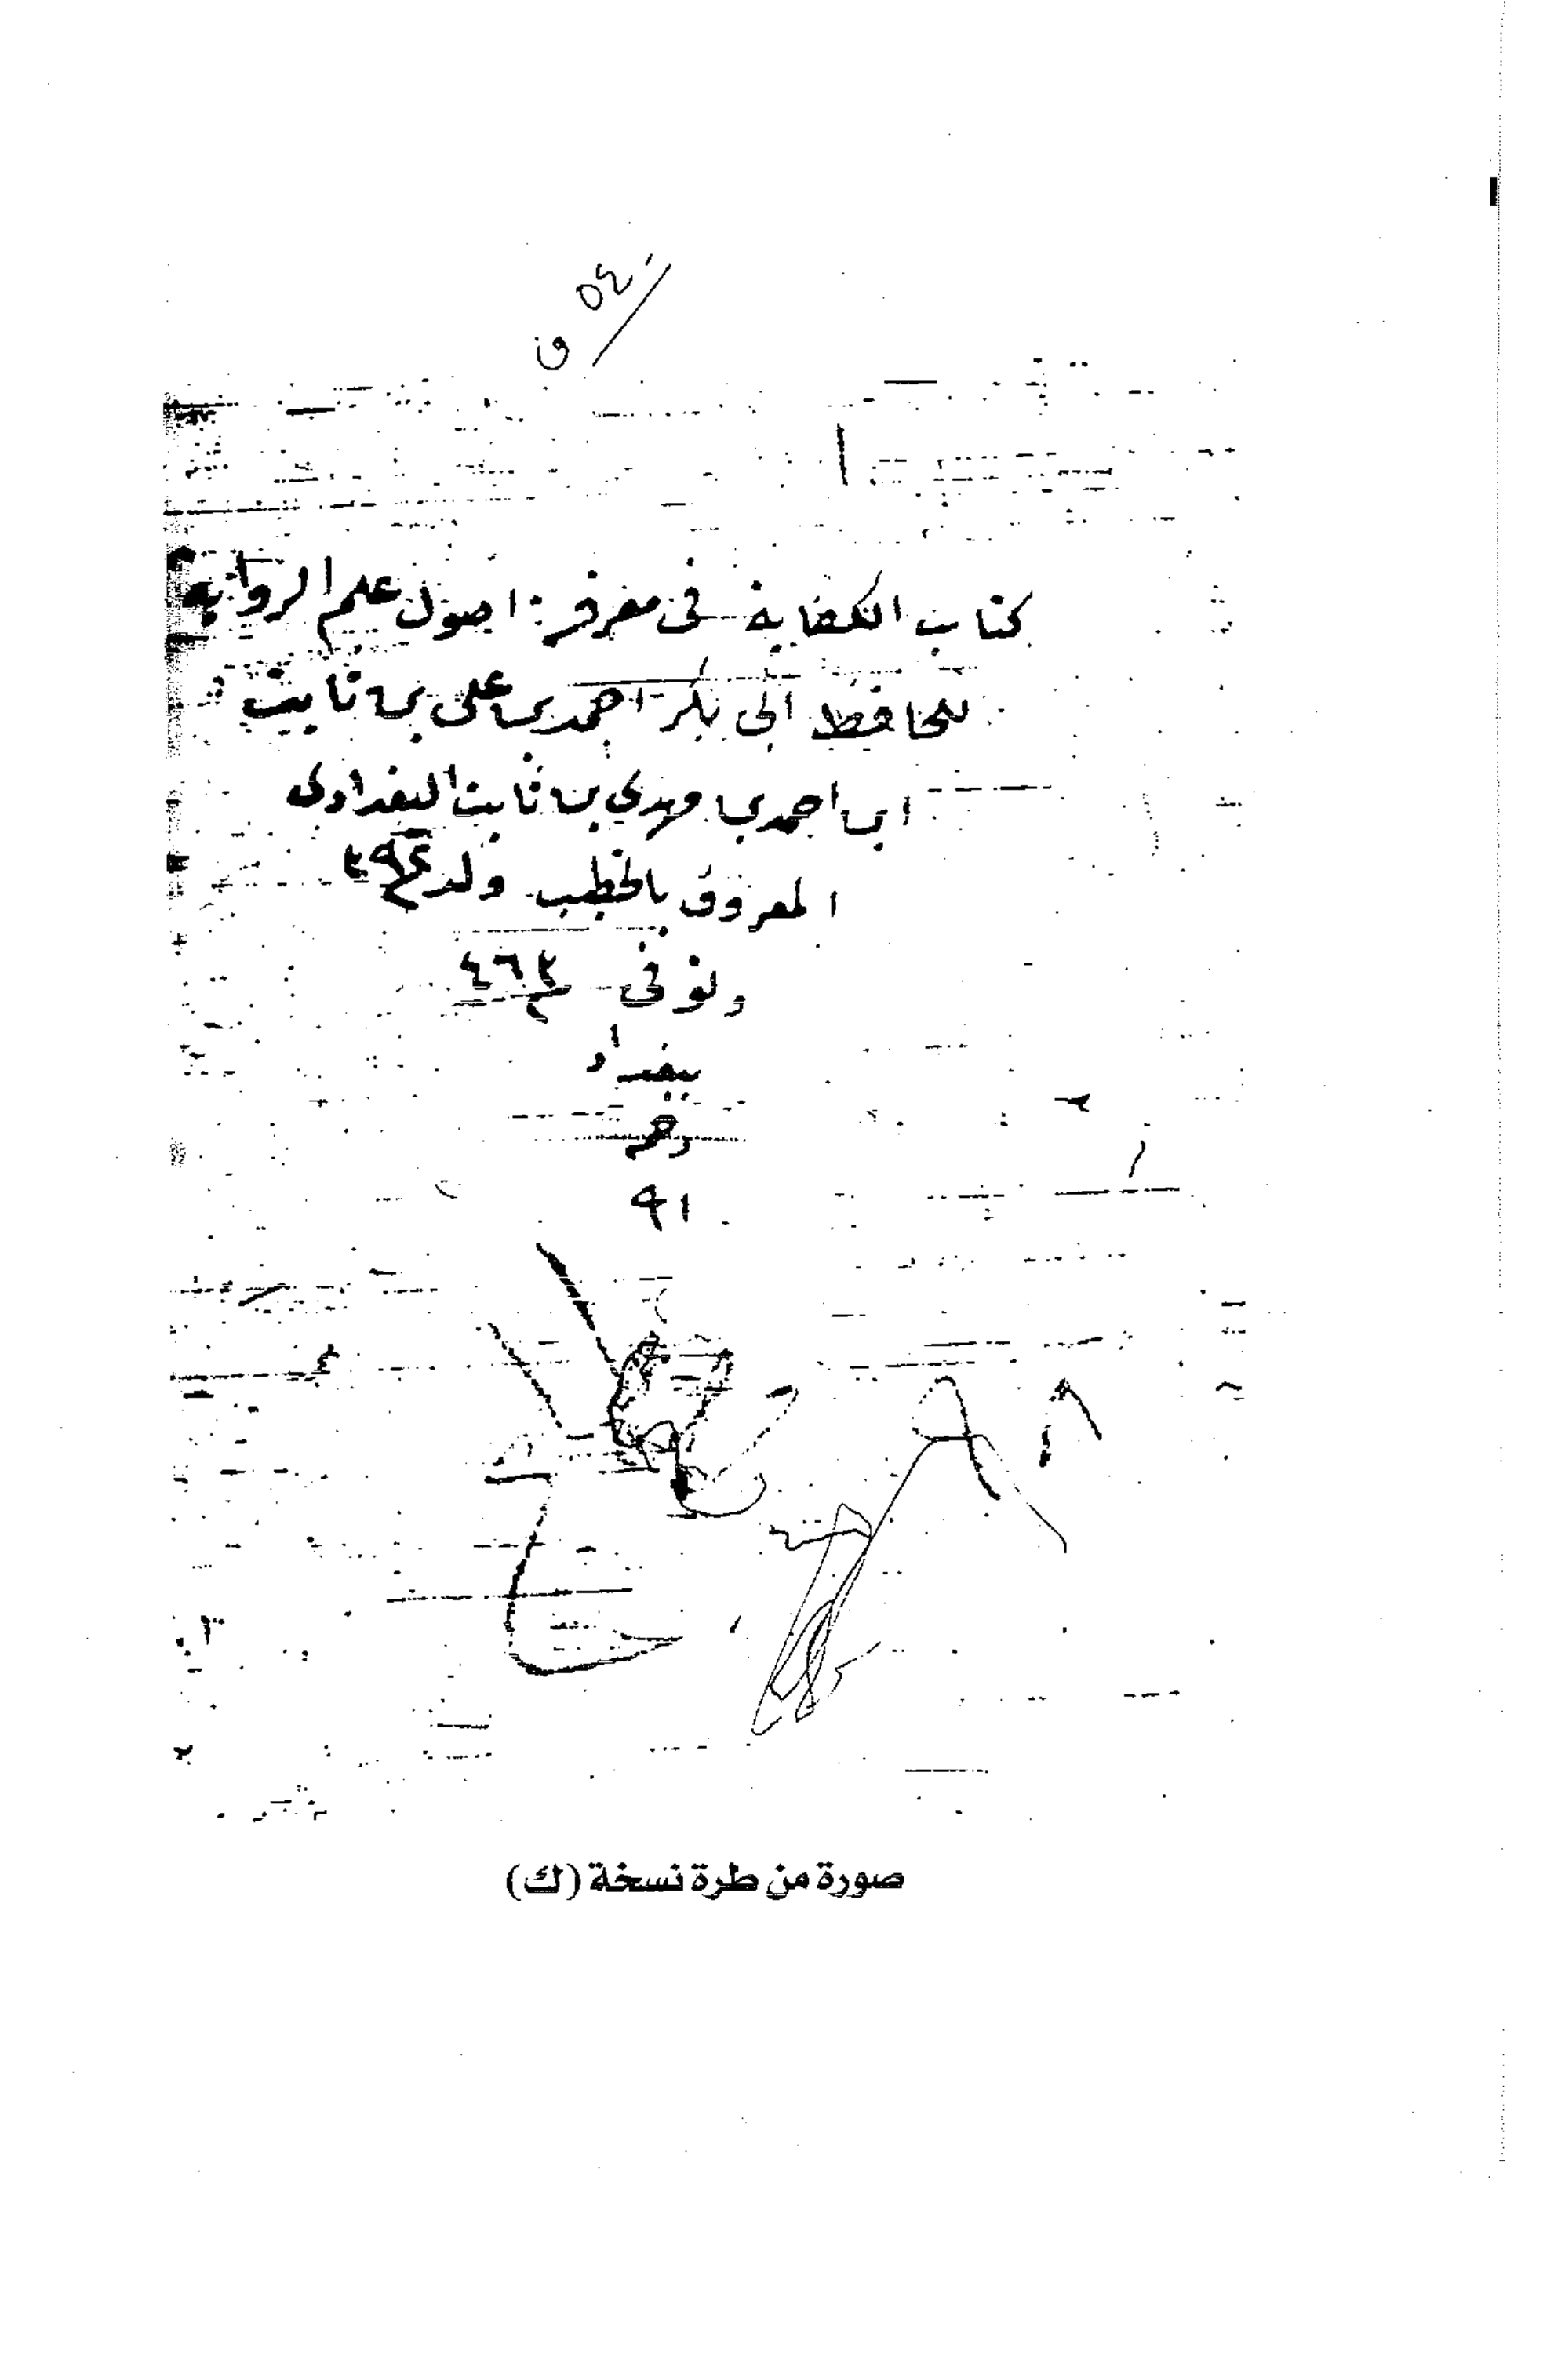 ٥٤٠
ق
كتاب الكفاية فى معرفة اصول علم الرواية
للحافظ ابى بكر احمد بن على بن ثابت
ابن احمد بن مهدى بن ثابت البغدادى
المعروف بالخطيب ولد ٣٩٢
وتوفى ٤٦٣
ببغداد
رحمه
٩١
٩٨
صورة من طرة نسخة (ك)